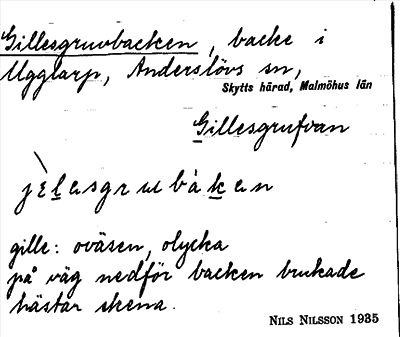 Gillesgruvbacken, backe i
Ugglarp, Anderslövs sn,
Skytts härad, Malmöhus län
Gillesgrufvan
jèlesgruubákan
gille: oväsen, olycka
på väg nedför backen brukade
hästar skena.
NILS NILSSON 1935